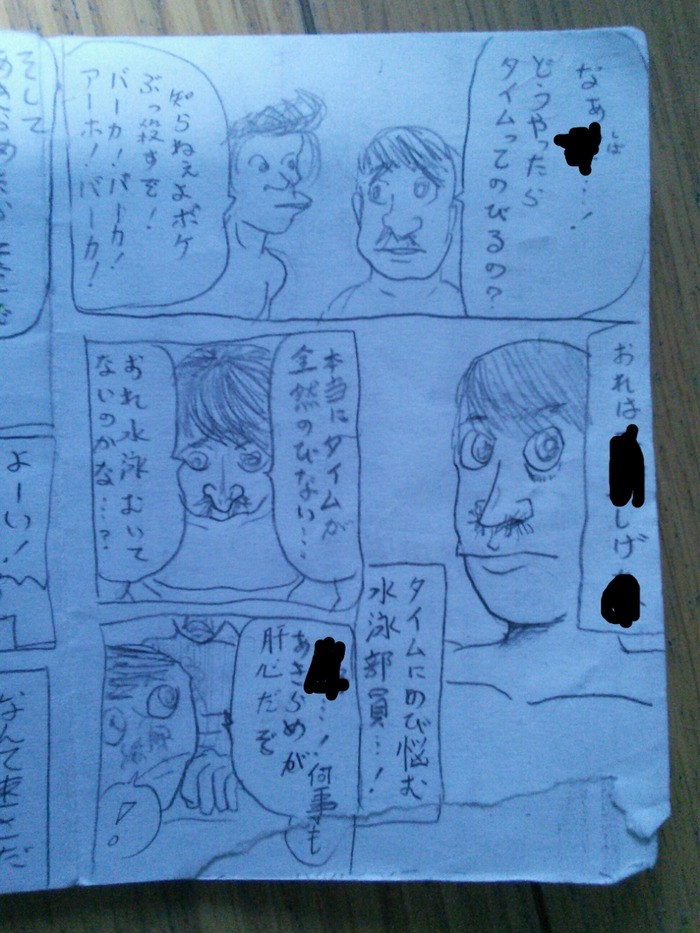 なあ…!
しば
どうやったら
タイムってのびるの?
知らねぇよボケ
ぶっ殺すぞ!
バーカ!バーカ!
アーホ!バーカ!
おれは
しげ
タイムにのび悩む
水泳部員…!
本当にタイムが
全然のびない…
おれ水泳むいて
ないのかな…?
…!何事も
あきらめが
肝心だぞ
そして
よーい!
なんて速さだ